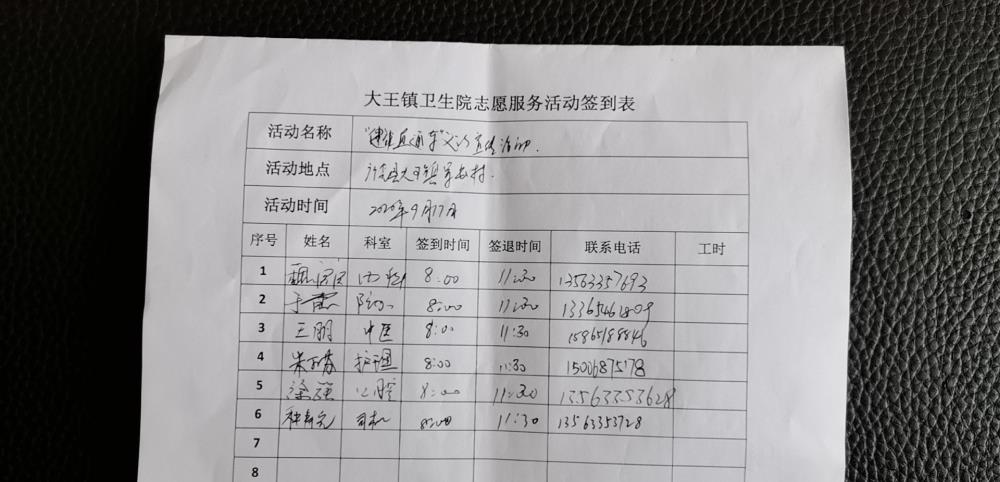 大王镇卫生院志愿服务活动签到表
活动名称 "健康直通车"义诊宣传活动.
活动地点 大王镇 村.
活动时间 2020年9月17日
序号 姓名 科室 签到时间 签退时间 联系电话 工时
1 内科 8:00 11:30 13563357693
2 于 8:00 11:30 13365461809
3 王明 中医 8:00 11:30 15865188846
4 朱 护理 8:00 11:30 15006875178
5 徐强 口腔 8:00 11:30 13563353628
6 司机 8:00 11:30 13563353728
7
8